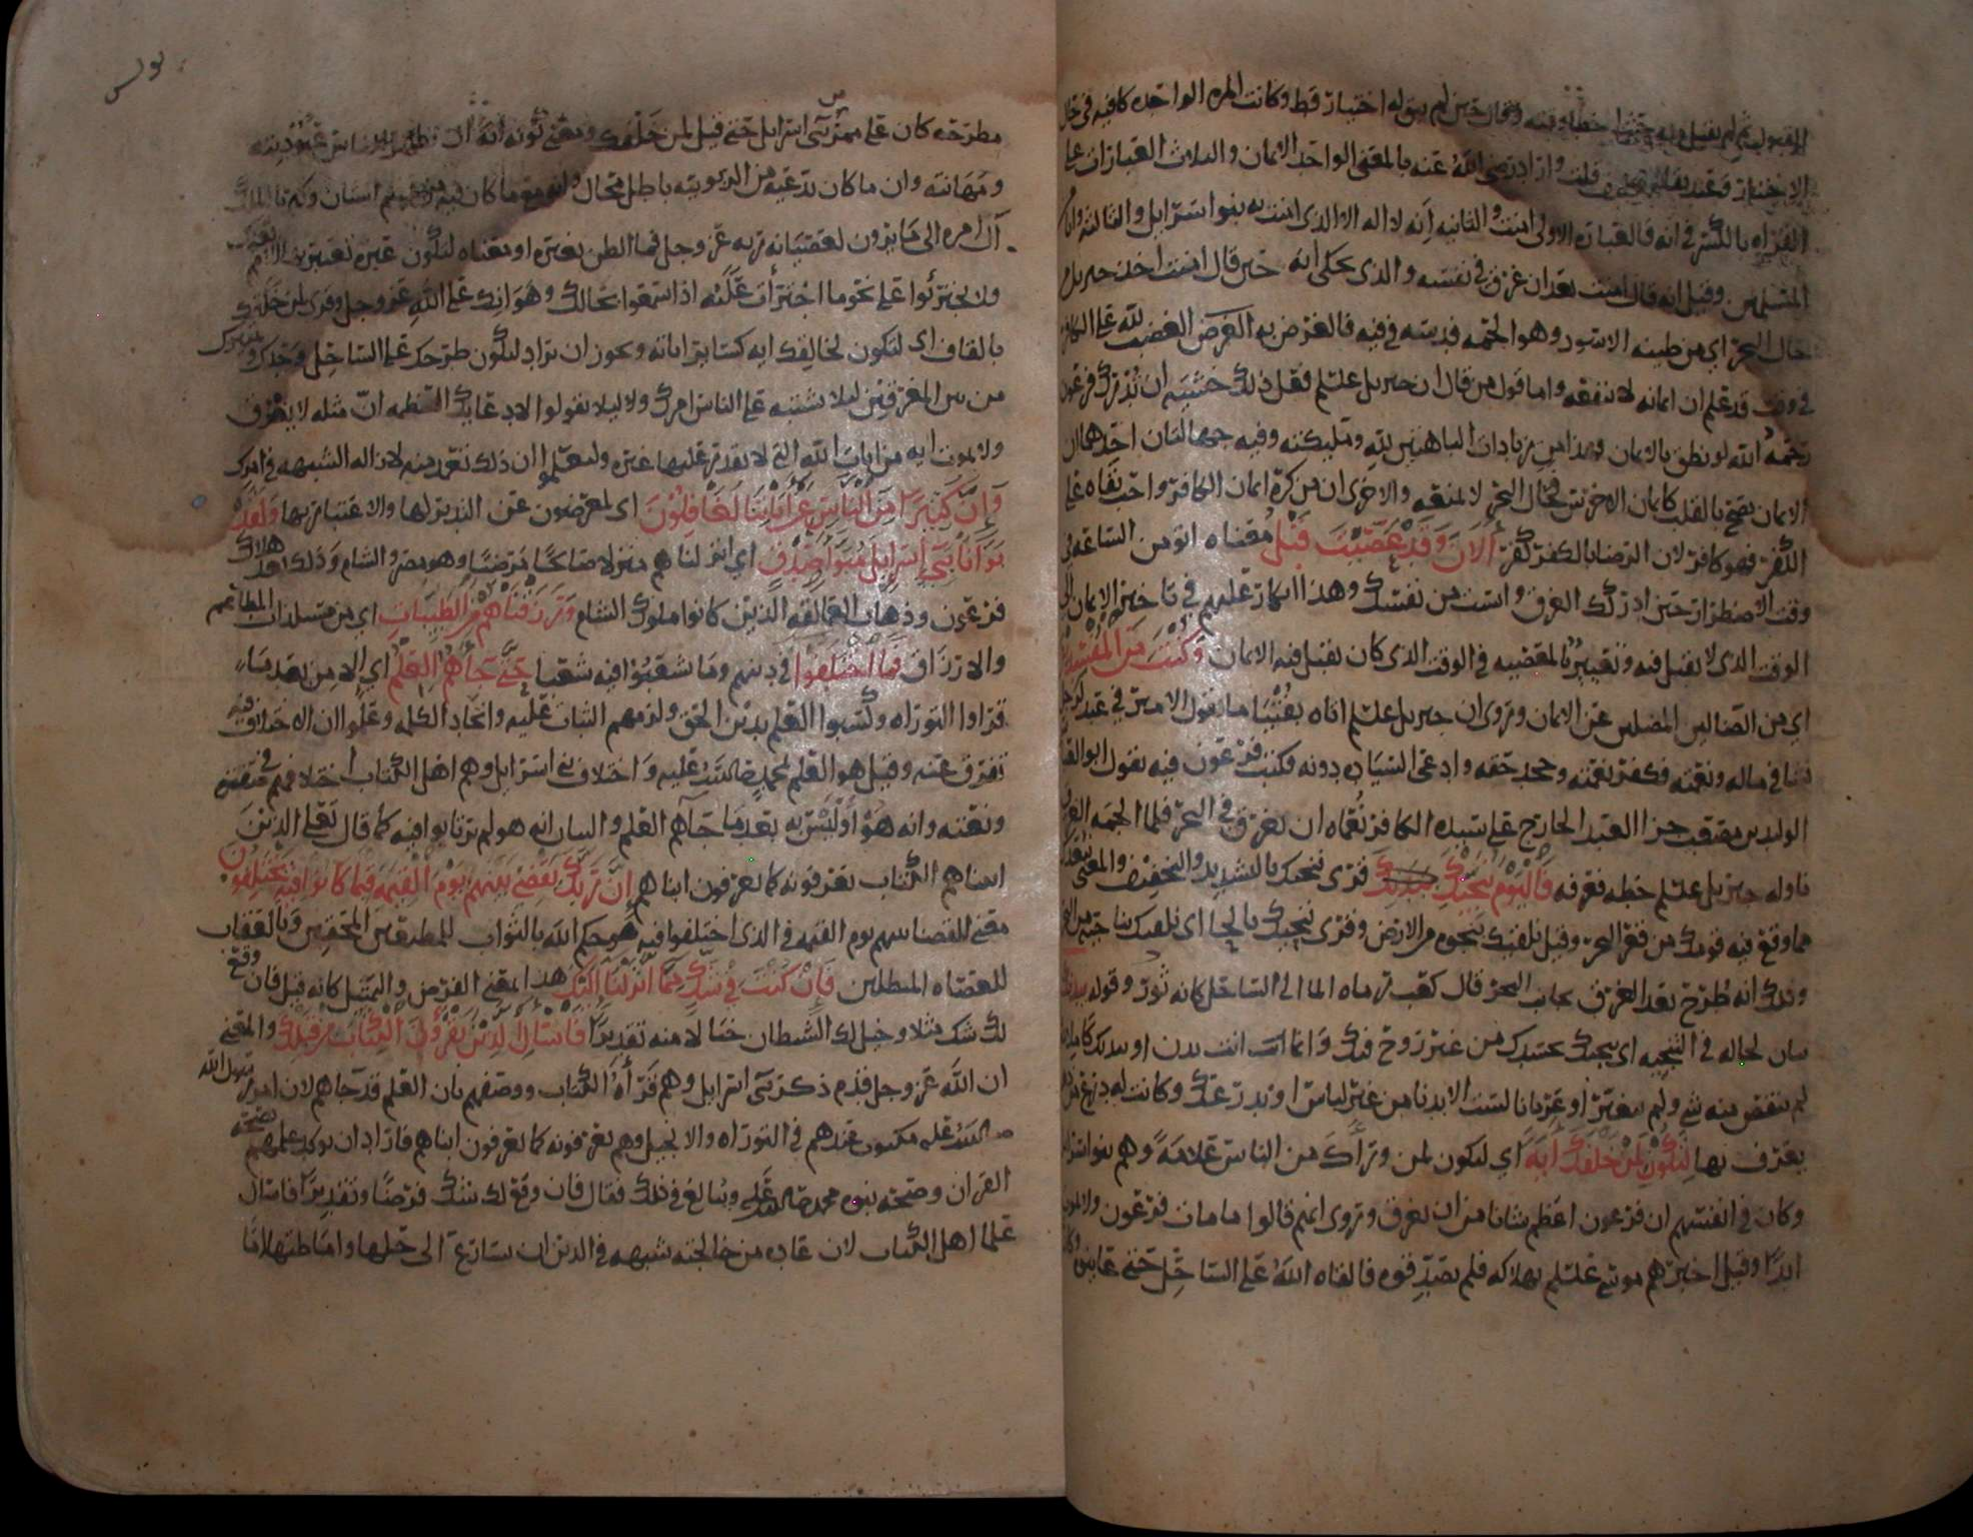 القبول ثم لم يقبل منه حيث اخطا وقته وقاله حين لم يبق له اختيار قط وكانت المره الواحده كافيه في حال
الاختيار وعند بقا قلت واراد رضي الله عنه بالمعنى الواحد الايمان والثلاث العبارات على
القراه بالكسر في انه فالعباره الاولى امنت والثانيه انه لا اله الا الذي امنت به بنوا اسرايل والثالثه وانا
المسلمين وقيل انه قال امنت بعد ان غرق في نفسه والذي يحكى انه حين قال امنت اخذ جبريل
حال البحر اي من طينه الاسود وهو الحمه فدسه في فيه فالغرض به الغرض الغضب لله على الكافر
في وقت قد علم ان ايمانه لا ينفعه واما قول من قال ان جبريل علسلم فعل ذلك خشيه ان تدرك فرعون
رحمه الله لو نطق بالايمان فهذا من زيادات الباهتين لله وملايكته وفيه جهالتان احداهما ان
الايمان يصح بالقلب كايمان الاخرس فحال البحر لا يمنعه والاخرى ان من كره ايمان الكافر واحب بقاه على
الكفر فهو كافر لان الرضا بالكفر كفر ألآن وقد عصيت قبل معناه اتومن الساعه في
وقت الاضطرار حين ادركك الغرق وايست من نفسك وهذا انكار عليهم في تاخير الايمان الى
الوقت الذي لا يقبل فيه وتعيير بالمعصيه في الوقت الذي كان يقبل فيه الايمان وكنت من المفسدين
اي من الضالين المضلين عن الايمان وروي ان جبريل علسلم اتاه بفتيا ما يقول الامير في عبد لرجل
نشا في ماله ونعمته فكفر نعمته وجحد حقه وادعى السياده دونه فكتب فرعون فيه يقول ابو العباس
الوليد بن مصعب جزا العبد الخارج على سيده الكافر نعماه ان يغرق في البحر فلما الجمه الغرق
ناوله جبريل علسلم خطه فعرفه فاليوم ننجيك ببدنك قرى ننجيك بالتشديد والتخفيف والمعنى نبعدك
مما وقع فيه قومك من قعر البحر وقيل نلقيك بنجوه من الارض وقرى ننحيك بالحا اي نلقيك بناحيه من البحر
وذلك انه طرح بعد الغرق بجانب البحر قال كعب رماه الما الى الساحل كانه ثور وقوله ببدنك
بيان لحاله في التنجيه اي ننجيك بجسدك من غير روح فيك وانما انت بدن او ببدنك كاملا
لم ينقص منه شي ولم يتغير او عريانا لست الا بدنا من غير لباس او بدرعك وكانت له درع من ذهب
يعرف بها لتكون لمن خلفك ايه اي لتكون لمن وراك من الناس علامه وهم بنو اسرايل
وكان في انفسهم ان فرعون اعظم شانا من ان يغرق وروي انهم قالوا ما مات فرعون ولا يموت
ابدا وقيل اخبرهم موسى علسلم بهلاكه فلم يصدقوه فالقاه الله على الساحل حتى عاينوه وكان
يونس
مطرحه كان على ممر بني اسرايل حتى قيل لمن خلفك ومعنى كونه ايه ان تظهر للناس عبوديته
ومهانته وان ما كان يدعيه من الربوبيه باطل محال وانه مع ما كان فيه من عظيم الشان وكبريا الملك
آل امره الى ما يرون لعصيانه ربه عز وجل فما الظن بغيره او معناه لتكون عبره تعتبر بها الامم بعدك
ولا يجتروا على نحو ما اجترات عليه اذا سمعوا بحالك وهوانك على الله عز وجل وقرى لمن خلقك
بالقاف اي لتكون لخالقك ايه كساير اياته ويجوز ان يراد ليكون طرحك على الساحل وحدك وتمييزك
من بين المغرقين ليلا يشتبه على الناس امرك وليلا يقولوا لادعايك العظمه ان مثله لا يغرق
ولا يموت ايه من ايات الله التي لا يقدر عليها غيره وليعلموا ان ذلك تعمد منه لازاله الشبهه في امرك
وإن كثيرا من الناس عن آياتنا لغافلون اي لمعرضون عن التدبر لها والاعتبار بها ولقد
بوأنا بني اسرايل مبوأ صدق اي انزلناهم منزلا صالحا مرضيا وهو مصر والشام وذلك بعد هلاك
فرعون وذهاب العمالقه الذين كانوا ملوك الشام ورزقناهم من الطيبات اي من مستلذات المطاعم
والارزاق فما اختلفوا في دينهم وما شعبوا فيه شعبا حتى جاهم العلم اي الا من بعد ما
قراوا التوراه وكسبوا العلم بدين الحق ولزمهم الثبات عليه واتحاد الكلمه وعلموا ان الاختلاف فيه
تفرق عنه وقيل هو العلم لمحمد صلى الله عليه واختلاف بني اسرايل وهم اهل الكتاب اختلافهم في صفته
ونعته وانه هو او ليس به بعد ما جاهم العلم والبيان انه هو لم يرتابوا فيه كما قال تعلى الذين
اتيناهم الكتاب يعرفونه كما يعرفون ابناهم إن ربك يقضي بينهم يوم القيمه فيما كانوا فيه يختلفون
معنى القضا بينهم يوم القيمه في الذي اختلفوا فيه هو حكم الله بالثواب للمطيعين المحقين وبالعقاب
للعصاه المبطلين فإن كنت في شك مما انزلنا اليك هذا بمعنى الفرض والتمثيل كانه قيل فان وقع
لك شك مثلا وخيل لك الشيطان خيالا منه تقديرا فاسال الذين يقرؤن الكتاب من قبلك والمعنى
ان الله عز وجل قدم ذكر بني اسرايل وهم قراه الكتاب ووصفهم بان العلم قد جاهم لان امر رسول الله
صلى الله عليه مكتوب عندهم في التوراه والانجيل وهم يعرفونه كما يعرفون ابناهم فاراد ان يوكد علمهم بصحه
القران وصحه نبوه محمد صلى الله عليه ويبالغ في ذلك فقال فان وقع لك شك فرضا وتقديرا فاسال
علما اهل الكتاب لان عاده من خالجته شبهه في الدين ان يسارع الى حلها واماطتها اما